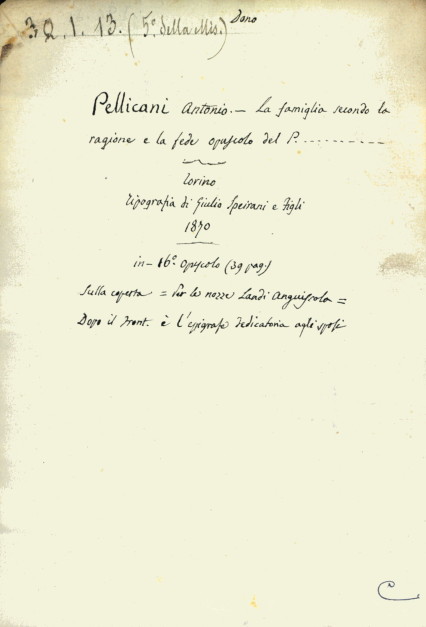 3, Q. 1. 13. (5º della Mis.) Dono
Pellicani Antonio. — La famiglia secondo la
ragione e la fede opuscolo del P. ----------
Torino
Tipografia di Giulio Speirani e Figli
1870
in-16º opuscolo (39 pag)
Sulla coperta = Per le nozze Landi Anguissola =
Dopo il Front. è l'epigrafe dedicatoria agli sposi
C